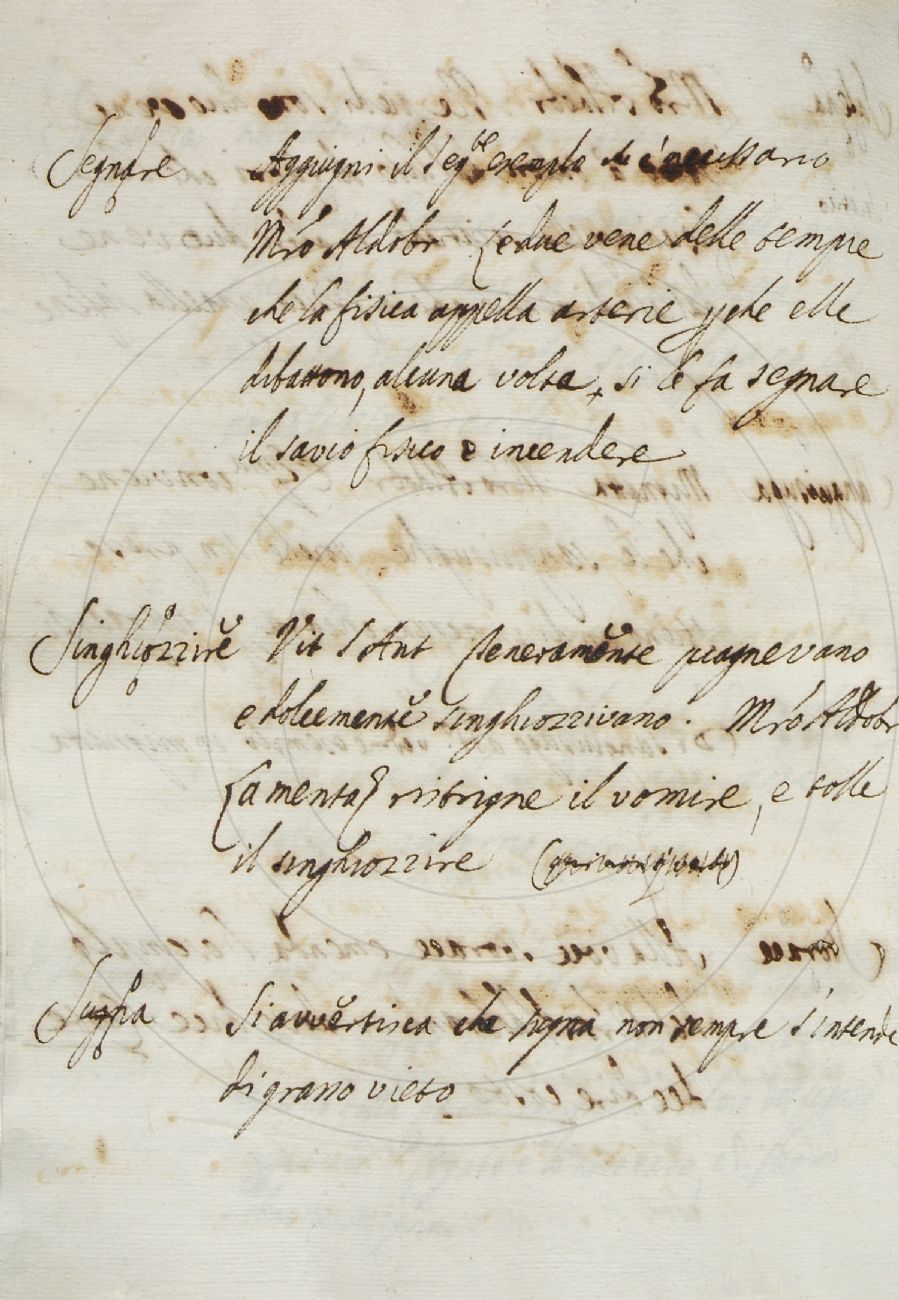 Segnare Aggiugni il seg.te esemplo è necessario
Mro Aldobr Le due vene delle tempie
che la fisica appella arterie p che elle
dibattono, alcuna volta, si le fa segnare
il savio fisico e incendere
Singhiozzire Vit S Ant Teneramente piagnevano
e dolcemente singhiozzivano. Mro Aldobr
La menta ristrigne il vomire, e tolle
il singhiozzire
Sugna Si avvertisca che sugna non sempre s'intende
di grasso vieto